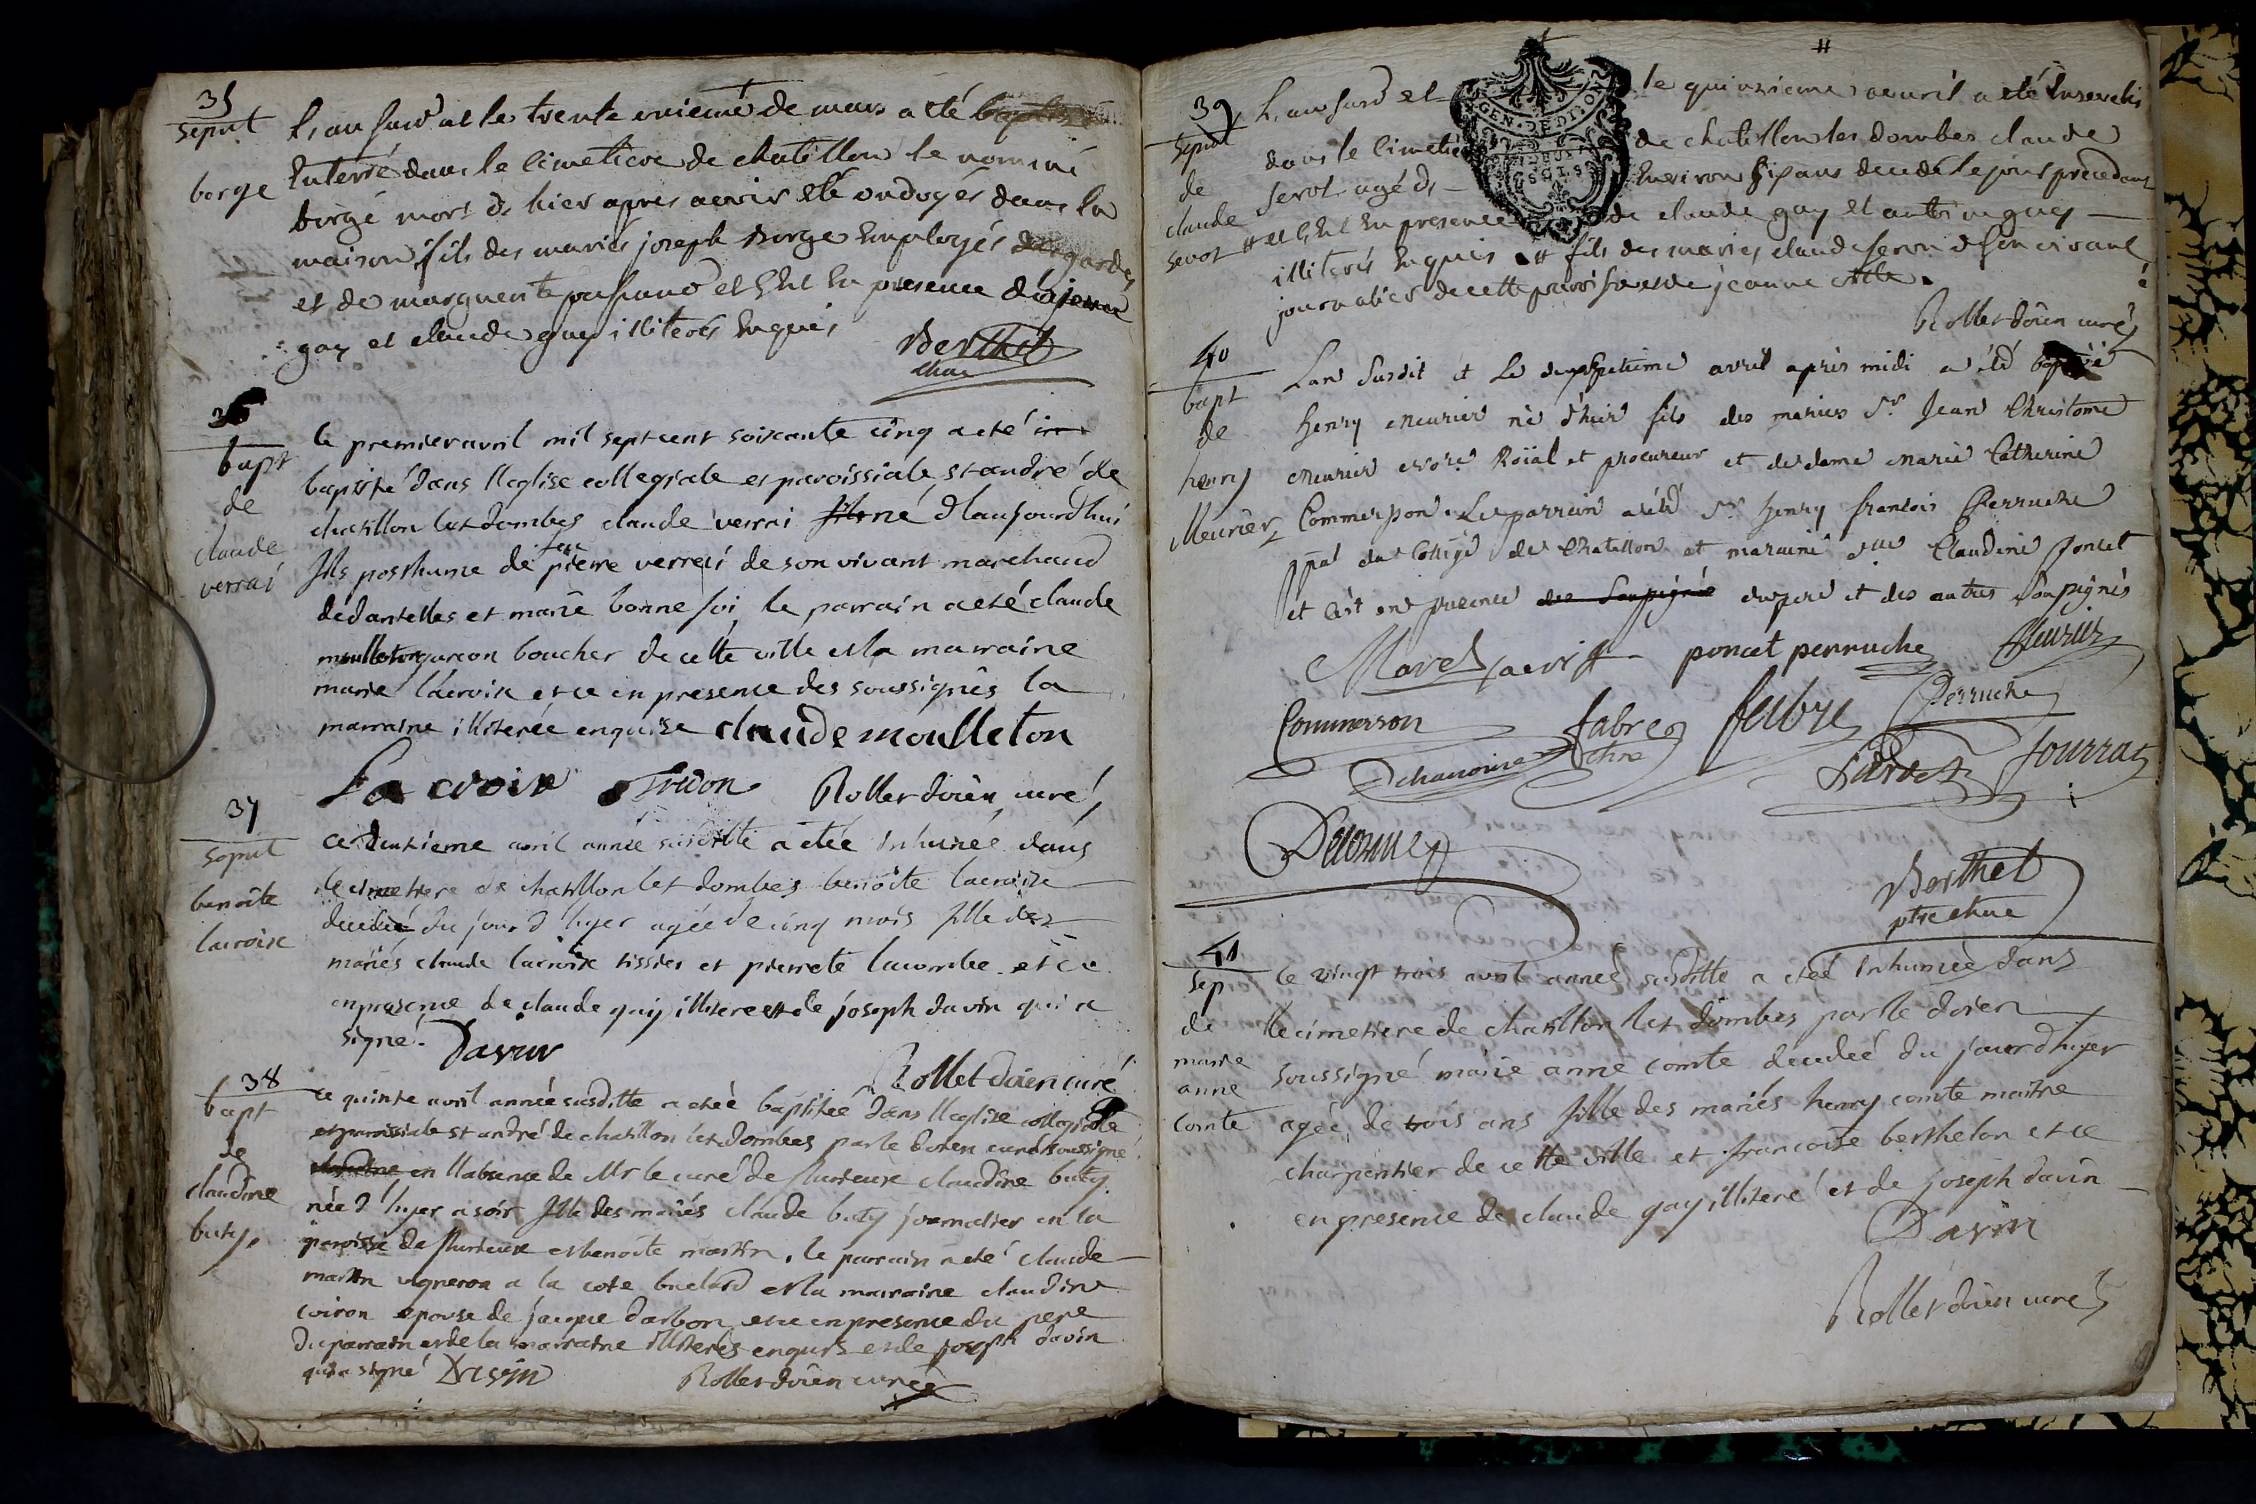 35
sepult
borge
L'an susd et le trente unieme de mars a eté
Enterré dans le Cimetiere de chatillon le nommé
borge mort d hier apres avoir eté ondoyés dans la
maison fils des mariés joseph borge Employés
et de marguerite et c'est En presence
gay et claude guey illiterés Enquis
Berthet
chne
bapt
de
claude
verrai
le premier avril mil sept cent soixante cinq a eté
baptisé dans lleglise collegiale et paroissiale st andré de
chatillon les dombes claude verrai né d'laujourdhui
fils posthume de feu pierre verrai de son vivant marchand
dedantelles et marie bonne foi le parrain a eté claude
moulleton garcon boucher de cette ville et la marraine
marie lacroix et ce en presence des soussignés la
marraine illiterée enquise claude moulleton
La croix Tredon Rollet doien curé
37
sepult
benoite
lacroix
ce deuxieme avril année susditte a etée inhumée dans
le cimetiere de chatillon les dombes benoite lacroix
decedée du jour d'hyer agée de cinq mois fille des
mariés claude lacroix tissier et pierrete lacombe et ce
en presence de claude gay illiteré et de joseph davin qui a
signé. Davin
Rollet doien curé
38
bapt
de
claudine
buty
ce quinze avril année susditte a etée baptisée dans lleglise collegiale
et paroissiale st andré de chatillon les dombes par le doien curé soussigné
en llabsence de Mr le curé de flurieux claudine buty
née d'hyer a soir fille des mariés claude buty journalier en la
paroisse de flurieux et benoite martin. le parrain a eté claude
martin vigneron a la cote et la marraine claudine
coiron epouse de jacque darbon et ce en presence du pere
du parrain et de la marraine illiterés enquis et de joseph davin
qui a signé Davin Rollet doien curé
39
sepult
de
claude
serot
L'an susd et le quinzieme avril a eté Enseveli
dans le Cimetiere de chatillon les dombes claude
serot agé d Environ six ans decedé le jour precedant
# et c'est En presence de claude gay et antoine guey
illiterés Enquis # fils des maries claude serot de son vivant
journalier de cette paroisse et de jeanne
Rollet doien curé
40
bapt
de
henry
Meurier
Lan susdit et Le dixseptieme avril après midi a été baptisé
henry Meurier né d'hier fils des mariés Sr Jean Christome
Meurier Roïal et procureur et de dame Marie Catherine
Commerson. Le parrain a été Sr henry francois Perruche
ppal du College de Chatillon et maraine dlle Claudine Poncet
et c'est en presence des soussignés du pere et des autres soussignés
Marel poncet perruche Meurier
Commerson fabre fabre Perruche
chanoine chne
Tardet Jourrat
Delorme
Berthet
ptre chne
41
sep
de
marie
anne
comte
le vingt trois avril année susditte a eteé inhumée dans
le cimetiere de chatillon les dombes par le doien
soussigné marie anne comte decedeé du jourdhyer
agée de trois ans fille des mariés henry comte maitre
charpentier de cette ville et francoise berthelon et ce
en presence de claude gay illiteré et de joseph davin
Davin
Rollet doien curé